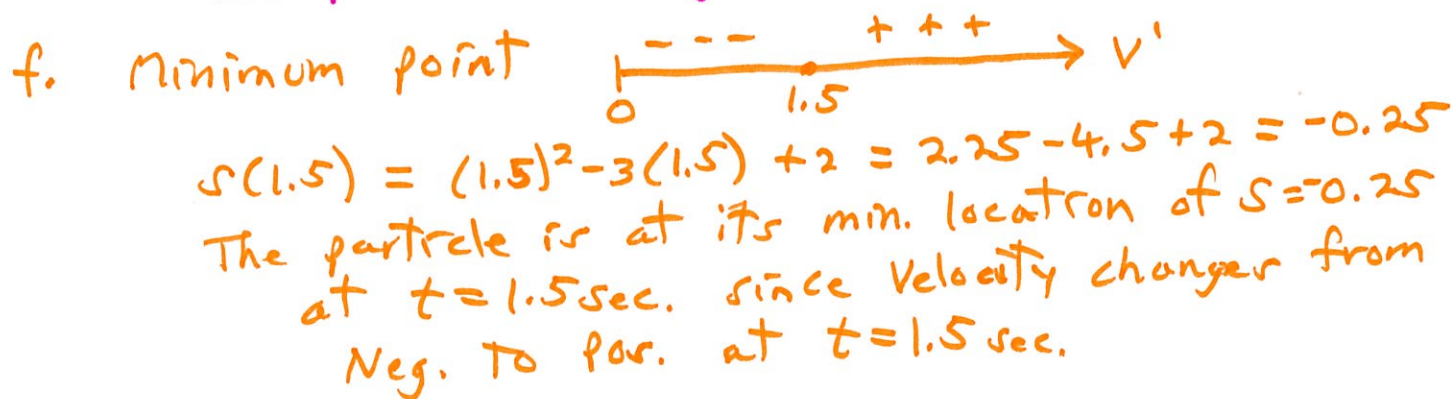 f. Minimum point - - - + + + V'
0 1.5
s(1.5) = (1.5)²-3(1.5) +2 = 2.25-4.5+2 = -0.25
The particle is at its min. location of s=-0.25
at t=1.5sec. since Velocity changes from
Neg. To Pos. at t=1.5 sec.